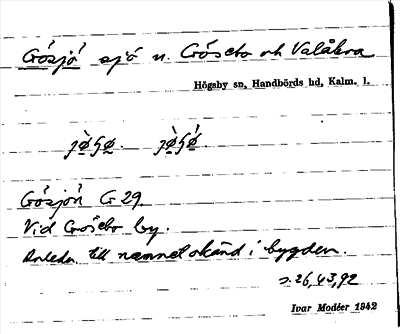 Grösjö sjö n. Grösebo och Valåkra
Högsby sn, Handbörds hd, Kalm. l.
Grösjön G 29.
Vid Grösebo by.
Anledn. till namnet okänd i bygden.
s. 26, 43, 92
Ivar Modéer 1942